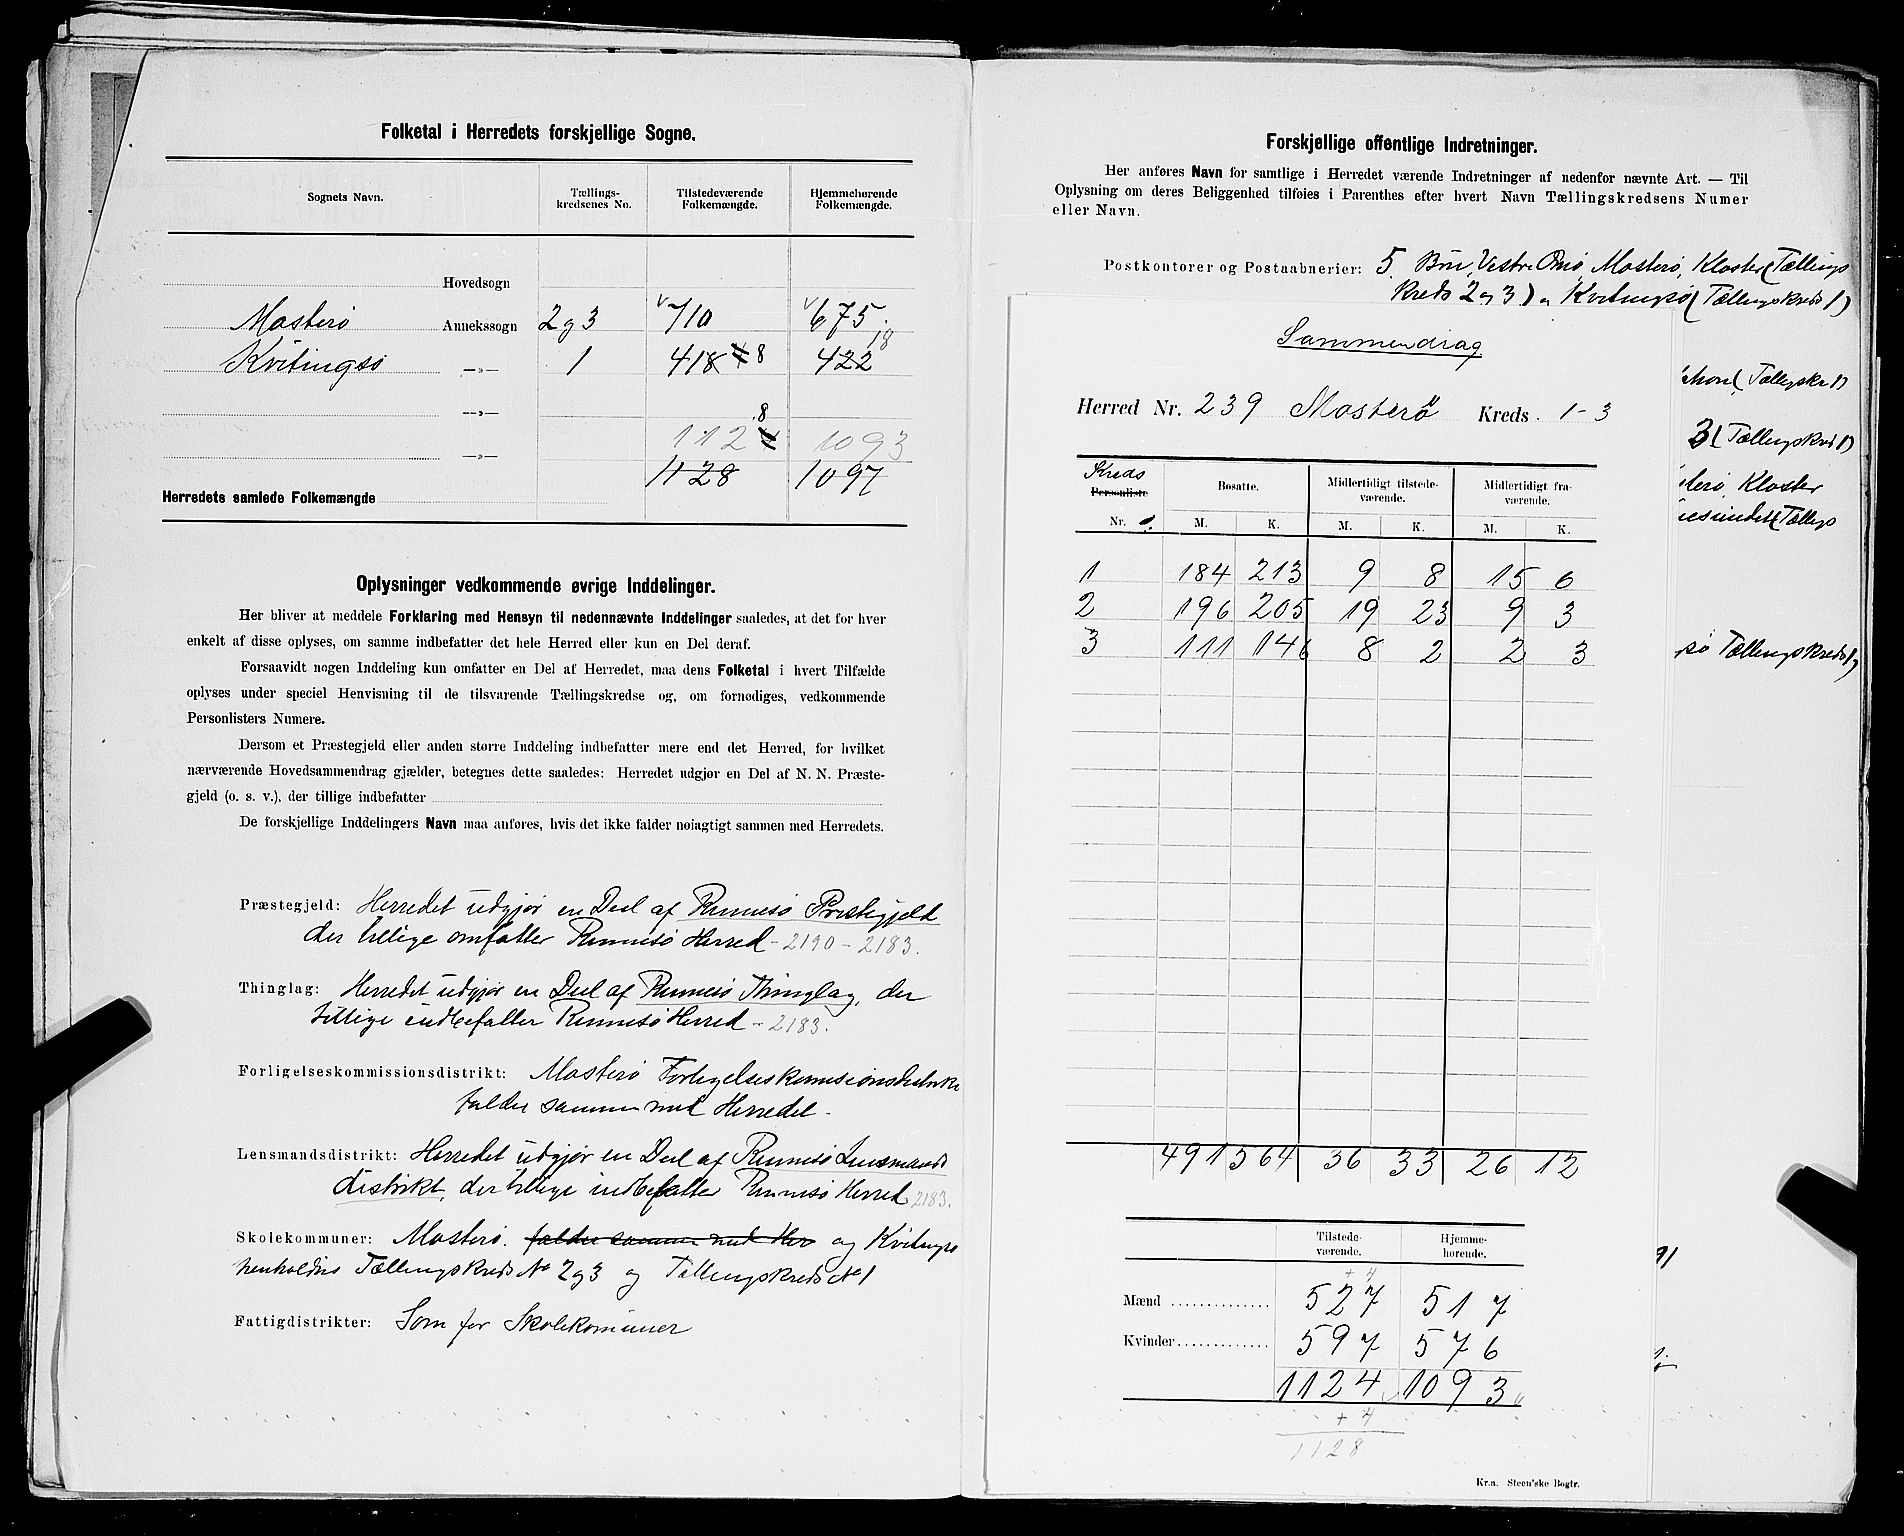 Folketal i Herredets forskjellige Sogne.
Sognets Navn. Tællings-kredsenes No. Tilstedeværende Folkemængde. Hjemmehørende Folkemængde.
Hovedsogn
Mosterø Annekssogn 2 og 3 710 675
18
Kvitingsø —»— 1 418 8 422
—»— 8
—»— 112 1093
1128 1097
Herredets samlede Folkemængde
Oplysninger vedkommende øvrige Inddelinger.
Her bliver at meddele Forklaring med Hensyn til nedennævnte Inddelinger saaledes, at det for hver
enkelt af disse oplyses, om samme indbefatter det hele Herred eller kun en Del deraf.
Forsaavidt nogen Inddeling kun omfatter en Del af Herredet, maa dens Folketal i hvert Tilfælde
oplyses under speciel Henvisning til de tilsvarende Tællingskredse og, om fornødiges, vedkommende
Personlisters Numere.
Dersom et Præstegjeld eller anden større Inddeling indbefatter mere end det Herred, for hvilket
nærværende Hovedsammendrag gjælder, betegnes dette saaledes: Herredet udgjør en Del af N. N. Præste-
gjeld (o. s. v.), der tillige indbefatter
De forskjellige Inddelingers Navn maa anføres, hvis det ikke falder nøiagtigt sammen med Herredets.
Præstegjeld: Herredet udgjør en Deel af Rennesø Prestegjeld
der tillige omfatter Rennesø Herred - 2190 - 2183.
Thinglag: Herredet udgjør en Deel af Rennesø Thinglag, der
tillige indbefatter Rennesø Herred - 2183.
Forligelseskommissionsdistrikt: Mosterø Forligelseskomissionsdistrikt
falder sammen med Herredet.
Lensmandsdistrikt: Herredet udgjør en Deel af Rennesø Lensmands
distrikt, der tillige indbefatter Rennesø Herred 2183.
Skolekommuner: Mosterø. falder sammen med Her og Kvitingsø
henholdvis Tællingskreds No 2 og 3 og Tællingskreds No 1
Fattigdistrikter: Som for Skolekomuner
Forskjellige offentlige Indretninger.
Her anføres Navn for samtlige i Herredet værende Indretninger af nedenfor nævnte Art. — Til
Oplysning om deres Beliggenhed tilføies i Parenthes efter hvert Navn Tællingskredsens Numer
eller Navn.
Postkontorer og Postaabnerier: 5. Bru, Vestre Omø, Mosterø, Kloster (Tællings
kreds 2 og 3) og Kvitingsø (Tællingskreds 1)
Sammendrag
Herred Nr. 239 Mosterø Kreds. 1-3
Kreds
Personliste Nr. Bosatte. Midlertidigt tilstede-værende. Midlertidigt fra-værende.
M. K. M. K. M. K.
1 184 213 9 8 15 6
2 196 205 19 23 9 3
3 111 146 8 2 2 3
491 564 36 33 26 12
Tilstede-værende. Hjemme-hørende.
+ 4
Mænd 527 517
Kvinder 597 576
1124 1093
+ 4
1128
Kr.a. Steen'ske Bogtr.
(Tællingskr 1)
3 (Tællingskreds 1)
Kloster
(Tællings
sø Tællingskreds 1)